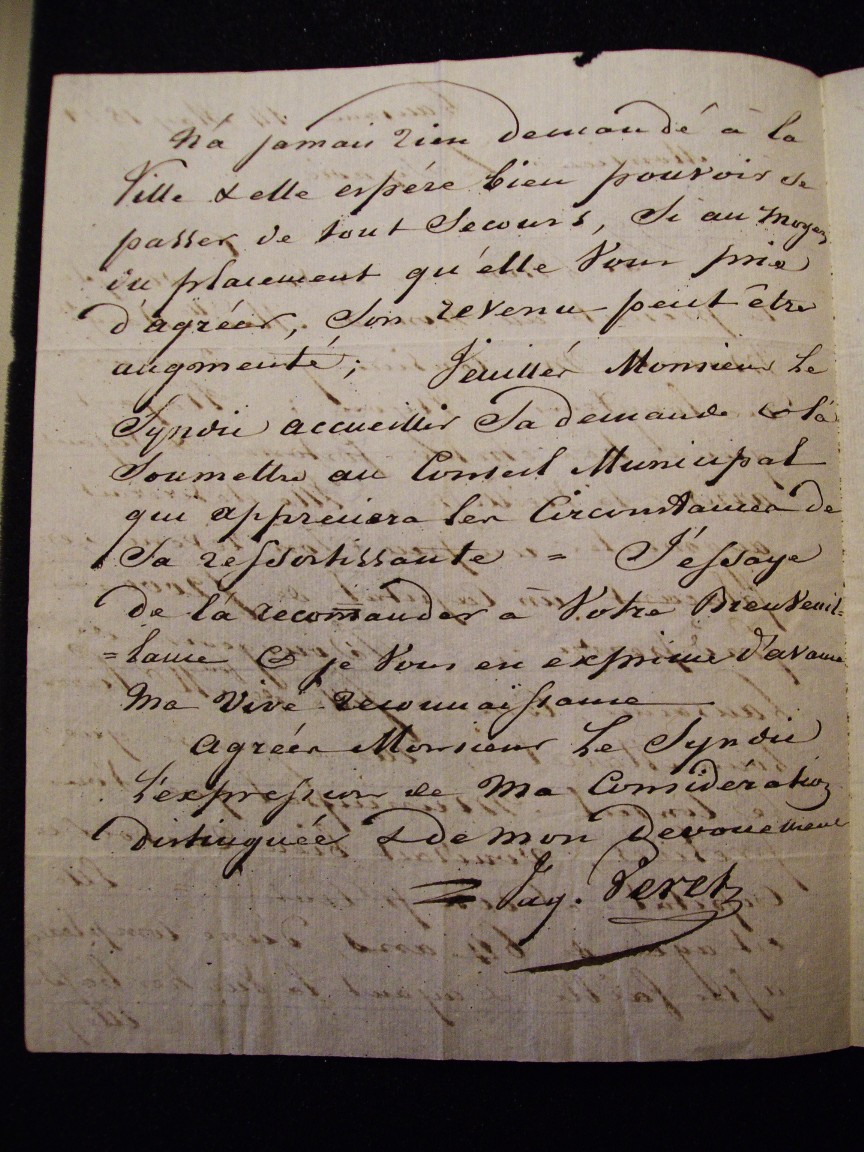 n'a jamais rien demandé à la
Ville & elle espére bien pouvoir se
passer de tout Secours, Si au moyen
du placement qu'elle Vous prie
d'agréer, Son revenu peut être
augmenté; Veuillés Monsieur Le
Syndic accueillir Sa demande & la
Soumettre au Conseil Municipal
qui appreciera les Circonstances de
Sa ressortissante = J'essaye
de la recommander à Votre Bienveuil=
=lance & je Vous en exprime d'avance
Ma Vive reconnaissance
agréés Monsieur Le Syndic
L'expression de Ma Considération
distinguée & de mon devouement
Perret